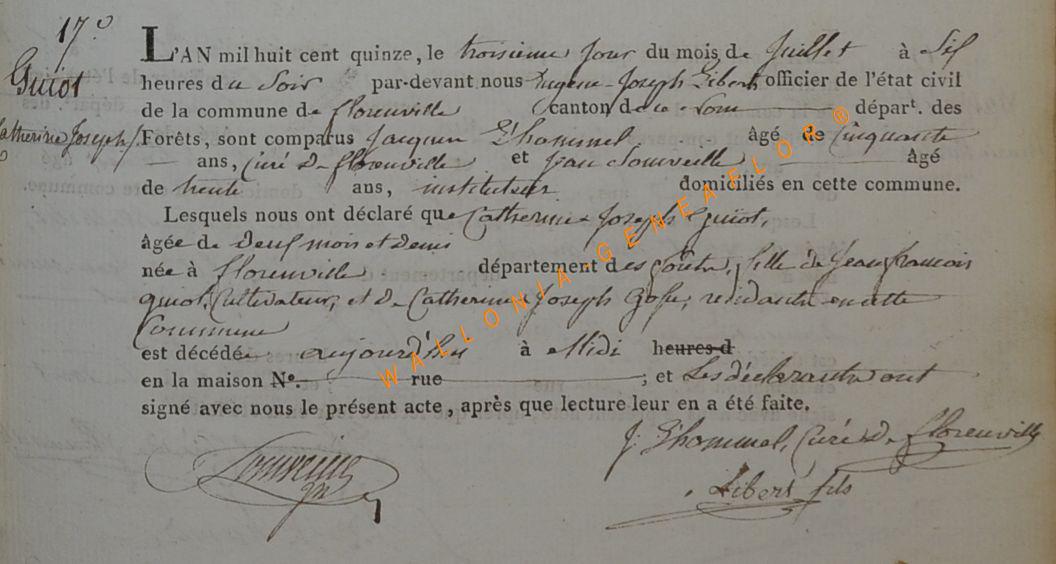 17°
Guiot
Catherine Joseph
L'AN mil huit cent quinze, le troisieme Jour du mois de Juillet à Six
heures du Soir par-devant nous Eugene Joseph Libert officier de l'état civil
de la commune de florenville canton de dép​art. des
Forêts, sont comparus Jacques L'hommel âgé de Cinquante
ans, Curé De florenville et Jean Louveille âgé
de trente ans, instituteur domiciliés en cette commune.
Lesquels nous ont déclaré que Catherine Joseph Guiot,
âgée de Deux mois et Demi
née à florenville département des forêts, fille de Jean francois
guiot, Cultivateur, et De Catherine Joseph residants en cette
Commune
est décédée aujourd'hui à Midi heures d
en la maison N°. rue ; et Les déclarants ont
signé avec nous le présent acte, après que lecture leur en a été faite.
J. L'hommel, Curé De florenville
Louveille
Libert fils
WALLONIA GENEAFLOR ®